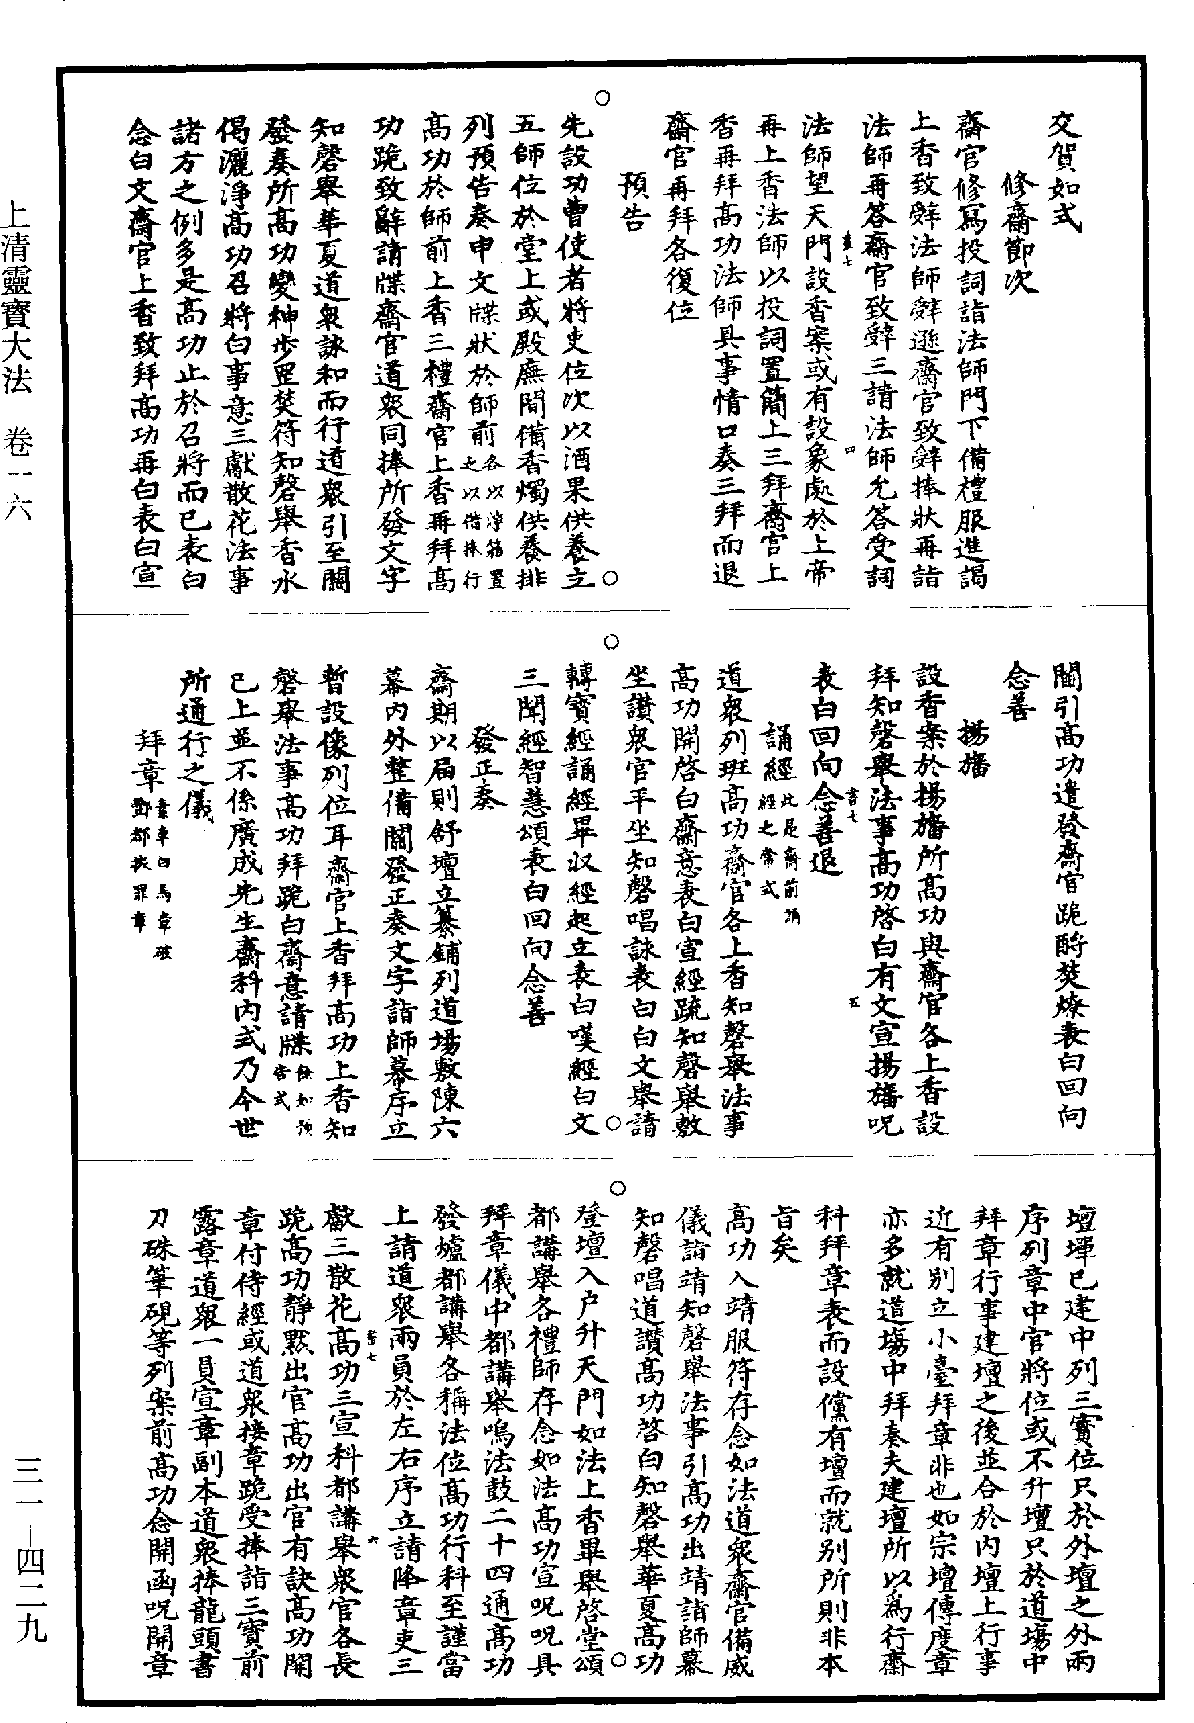 交賀如式
修齋節次
齋官修寫投詞詣法師門下備禮服進謁
上香致辭法師辭遜齋官致辭捧狀再詣
法師再答齋官致辭三請法師允答受詞
法師望天門設香案或有設象處於上帝
再上香法師以投詞置簡上三拜齋官上
香再拜高功法師具事情口奏三拜而退
齋官再拜各復位
預告
先設功曹使者將吏位次以酒果供養立
五師位於堂上或殿廡間備香燭供養排
列預告奏申文牒狀於師前各以淨箱置之以備捧行
高功於師前上香三禮齋官上香再拜高
功跪致辭請牒齋官道眾同捧所發文字
知磬舉華夏道眾詠和而行道眾引至關
發奏所高功變神步罡焚符知磬舉香水
偈灑淨高功召將白事意三獻散花法事
諸方之例多是高功止於召將而已表白
念白文齋官上香致拜高功再白表白宣
關引高功遣發齋官跪酹焚燎表白回向
念善
揚旛
設香案於揚旛所高功與齋官各上香設
拜知磬舉法事高功啓白有文宣揚旛呪
表白回向念善退
誦經此是齋前誦經之常式
道眾列班高功齋官各上香知磬舉法事
高功開啓白齋意表白宣經疏知磬舉敷
坐讚眾官平坐知磬唱詠表白白文舉請
轉寶經誦經畢収經起立表白嘆經白文
三聞經智慧頌表白回向念善
發正奏
齋期以屆則舒壇立纂鋪列道場敷陳六
幕內外整備關發正奏文字詣師幕序立
暫設像列位耳齋官上香拜高功上香知
磬舉法事高功拜跪白齋意請牒餘如預告式
已上並不係廣成先生齋科內式乃今世
所通行之儀
拜章素車白馬章破酆都拔罪章
壇墠已建中列三寶位只於外壇之外兩
序列章中官將位或不升壇只於道場中
拜章行事建壇之後並合於內壇上行事
近有別立小臺拜章非也如宗壇傳度章
亦多就道場中拜奏夫建壇所以為行齋
科拜章表而設儻有壇而就別所則非本
旨矣
高功入靖服符存念如法道眾齋官備威
儀詣靖知磬舉法事引高功出靖詣師幕
知磬唱道讚高功啓白知磬舉華夏高功
登壇入户升天門如法上香畢舉啓堂頌
都講舉各禮師存念如法高功宣呪呪具
拜章儀中都講舉鳴法鼓二十四通高功
發爐都講舉各稱法位高功行科至謹當
上請道眾兩員於左右序立請降章吏三
獻三散花高功三宣科都講舉眾官各長
跪高功靜默出官高功出官有訣高功開
章付侍經或道眾接章跪受捧詣三寶前
露章道眾一員宣章副本道眾捧龍頭書
刀硃筆硯等列案前高功念開函呪開章
上清靈寶大法　卷一六
三一—四二九